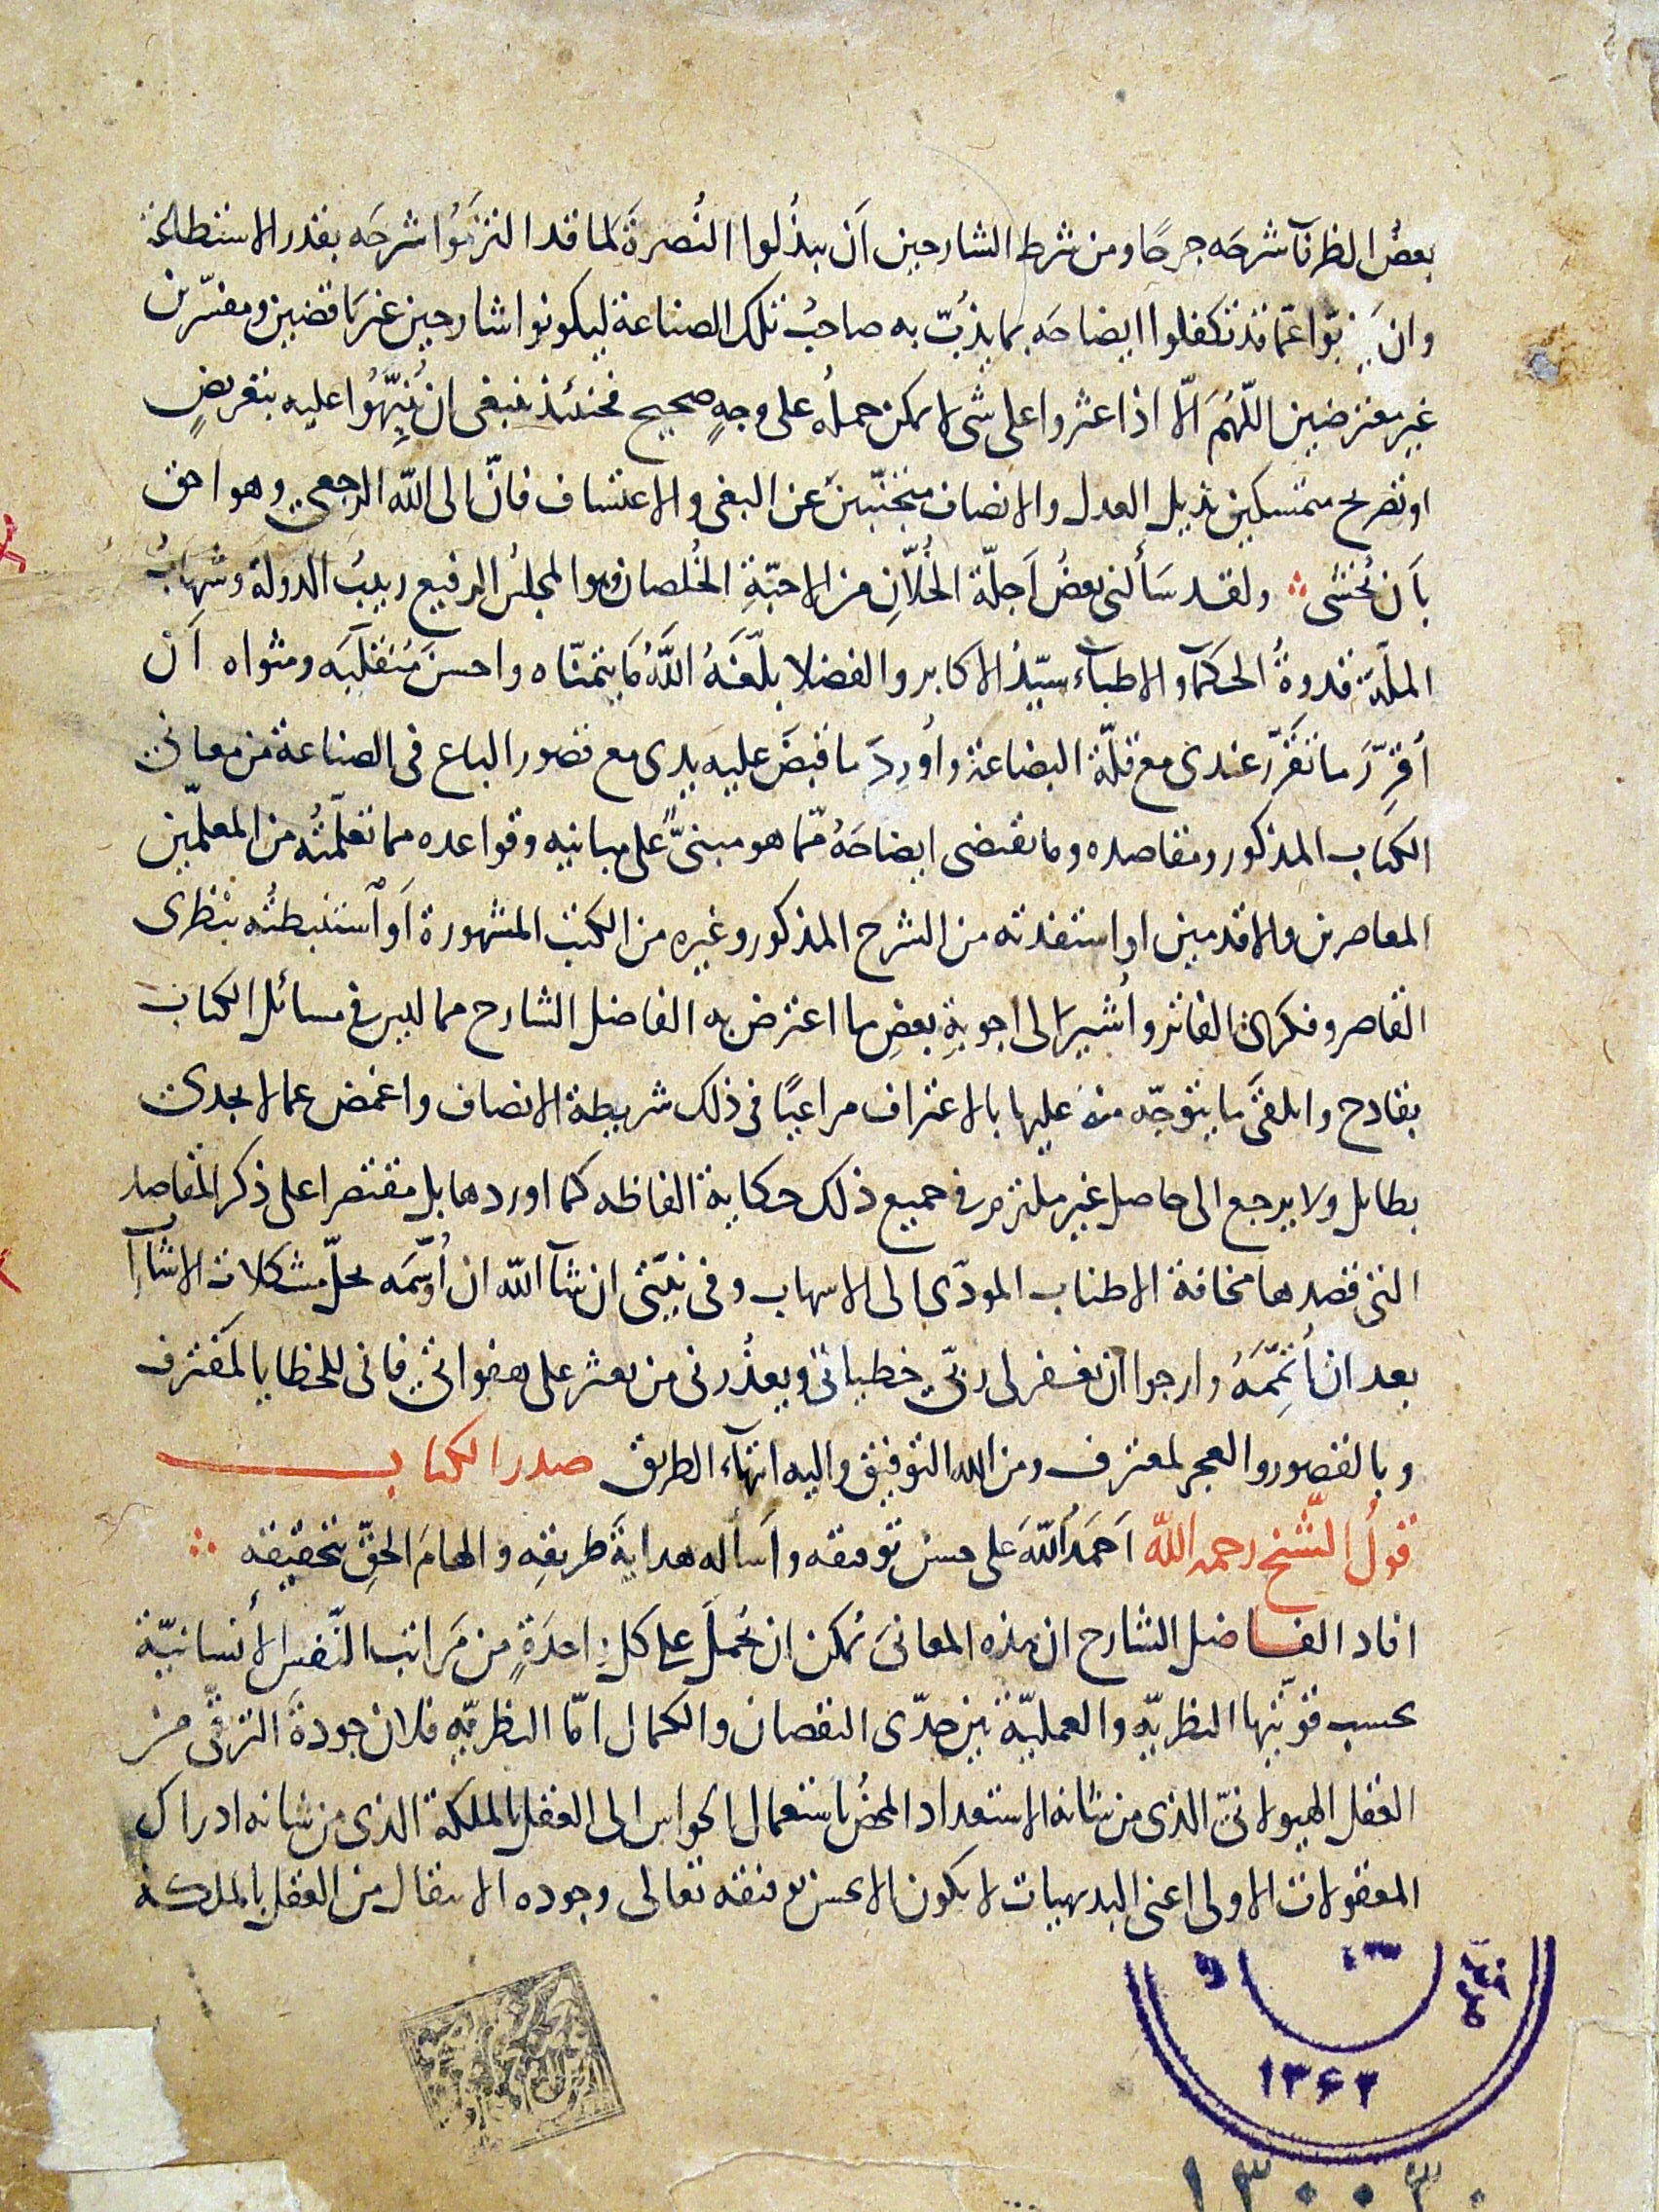 بعضُ الظرفآ شرحَه جرحًا ومن شرط الشارحين اَن يبذُلوا النُصرةَ لما قد التزمَوُا شرحَه بقدر الاستطاعة
وان يذبّوا عمّا قد تكفلوا ايضاحَه بما يذُبّ به صاحبُ تلك الصناعة ليكونوا شارحين غير ناقضين ومفسّرين
غير معترضين اللّهمَ الّا اذا عثروا على شى لا يمكن حملُه على وجهٍ صحيح فحينئذ ينبغى ان يُنبِّهُوا عليه بتعريضٍ
او تصريح متمسكين بذيل العدل والانصاف متجنّبينَ عن البغى والاعتساف فانّ الى اللّه الرجعى وهو احق
باَن يُخشى ولقد سَألنى بعضُ اَجلّة الخُلّانِ من الاحبّةِ الخُلصان وهو المجلسُ الرفيع ربيبُ الدولة وشهابُ
الملّة قدوةُ الحكمآ والاطبآء سيّدُ الاكابر والفضلا بلّغَهُ اللّهُ مَا يتمنّاه واحسنَ مُنقلَبَه ومثواه اَن
أقرِّرَ ما تقَرّرَ عندى مع قلّة البضاعة وأورِدَ ما قبضَ عليه يدى مع قصور الباع فى الصناعة من معانى
الكتاب المذكور ومقاصده وما يقتضى ايضاحَهُ مّما هو مبنىٌّ على مبانيه وقواعده مما تعلّمتُه من المعلمّين
المعاصرين والاقدمين او استفدته من الشرح المذكور وغيره من الكتب المشهورة اَو اَستنبطتُه بنظرى
القاصر وفكرى الفاتر وأشيرَ الى اجوبةِ بعضِ ما اعترض به الفاضل الشارح مما ليس فى مسائل الكتاب
بقادح واتلقّى ما يتوجّه منه عليها بالاعتراف مراعيًا فى ذلك شريطة الانصاف واغمض عما لا يجدى
بطايل ولا يرجع الى حاصل غير ملتزم فى جميع ذلك حكاية الفاظه كما اوردها بل مقتصرا على ذكر المقاصد
التى قصدها مخافة الاطناب المودّى الى الاسهاب وفى نيّتى ان شآ اللّه ان أوسّمَه بحلّ مشكلات الاشارا
بعد ان أتمِّمَهُ وارجوا ان يغفر لى ربّى خطياتى ويعذُرنى من يعثر على هفواتى فانى للخطايا لمقترف
وبالقصور والعجز لمعترف ومن اللّه التوفيق واليه انتهآء الطريق صدر الكتاب
قولُ الشّيخ رحمه اللّه اَحمَدُ اللّهَ على حسن توفيقه واَساله هدايةَ طريقِه والهامَ الحقّ بتحقيقه
افاد الفاضل الشارح ان هذه المعانىَ يُمكن ان يُحملَ على كل واحدَةٍ من مَراتب النّفس الأنسانيّة
بحسب قوّتيها النظريّه والعمليّة بين حدّى النقصان والكمال امّا النظريّه فلان جودةَ الترقّى من
العقل الهيولانىّ الذى من شانه الاستعداد المحضُ باستعمال الحواس الى العقل بالملكة الذى من شانه ادراك
المعقولات الاولى اعنى البديهيات لا يكون الا بحسن توفيقه تعالى وجوده الانتقال من العقل بالملكة
۱۳۶۲
۱۳۰۰۳۰